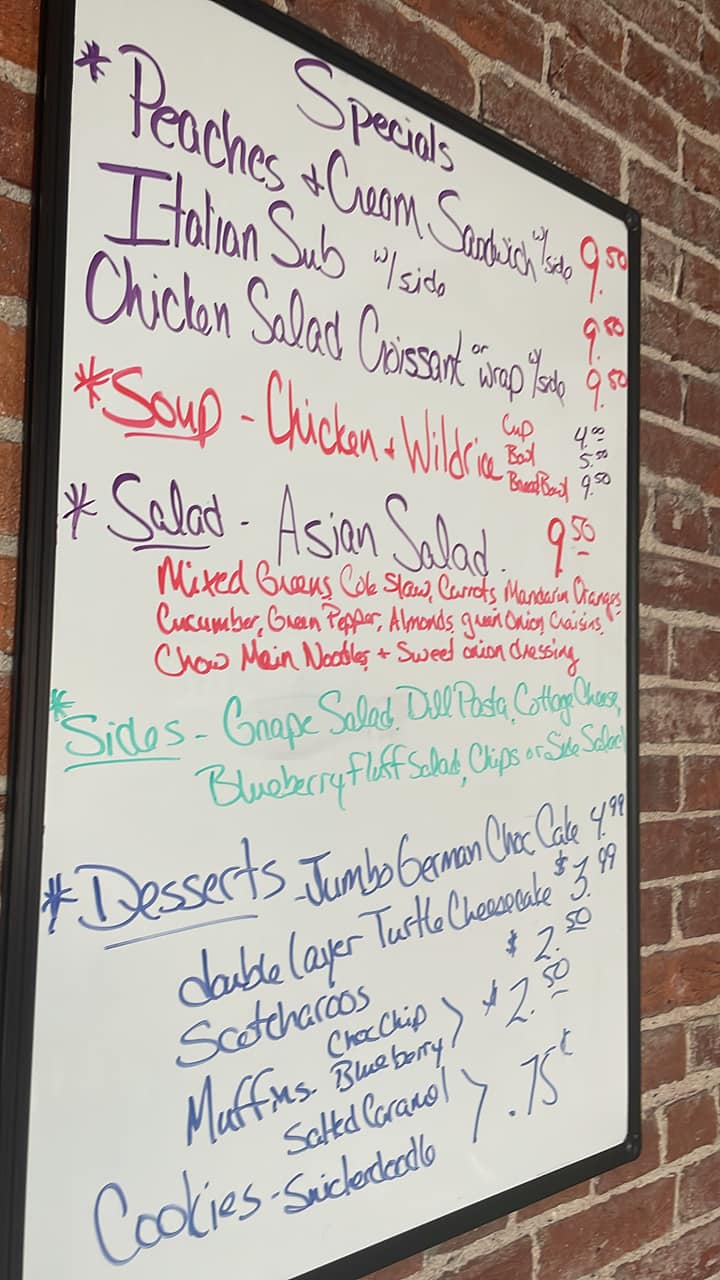 Specials
* Peaches + Cream Sandwich w/side 9.50
Italian Sub w/side 9.50
Chicken Salad Croissant or wrap w/side 9.50
* Soup - Chicken + Wildrice Cup 4.00
Bowl 5.50
Bread Bowl 9.50
* Salad - Asian Salad. 9.50
Mixed Greens, Cole Slaw, Carrots, Mandarin Oranges
Cucumber, Green Pepper, Almonds, green Onion, Craisins,
Chow Mein Noodles + Sweet onion dressing
* Sides - Grape Salad, Dill Pasta, Cottage Cheese,
Blueberry Fluff Salad, Chips or Side Salad
* Desserts - Jumbo German Choc Cake 4.99
double layer Turtle Cheesecake $3.99
Scotcharoos $2.50
Muffins - Choc Chip
Blueberry > $2.50
Cookies - Salted Caramel
Snickerdoodle > .75¢